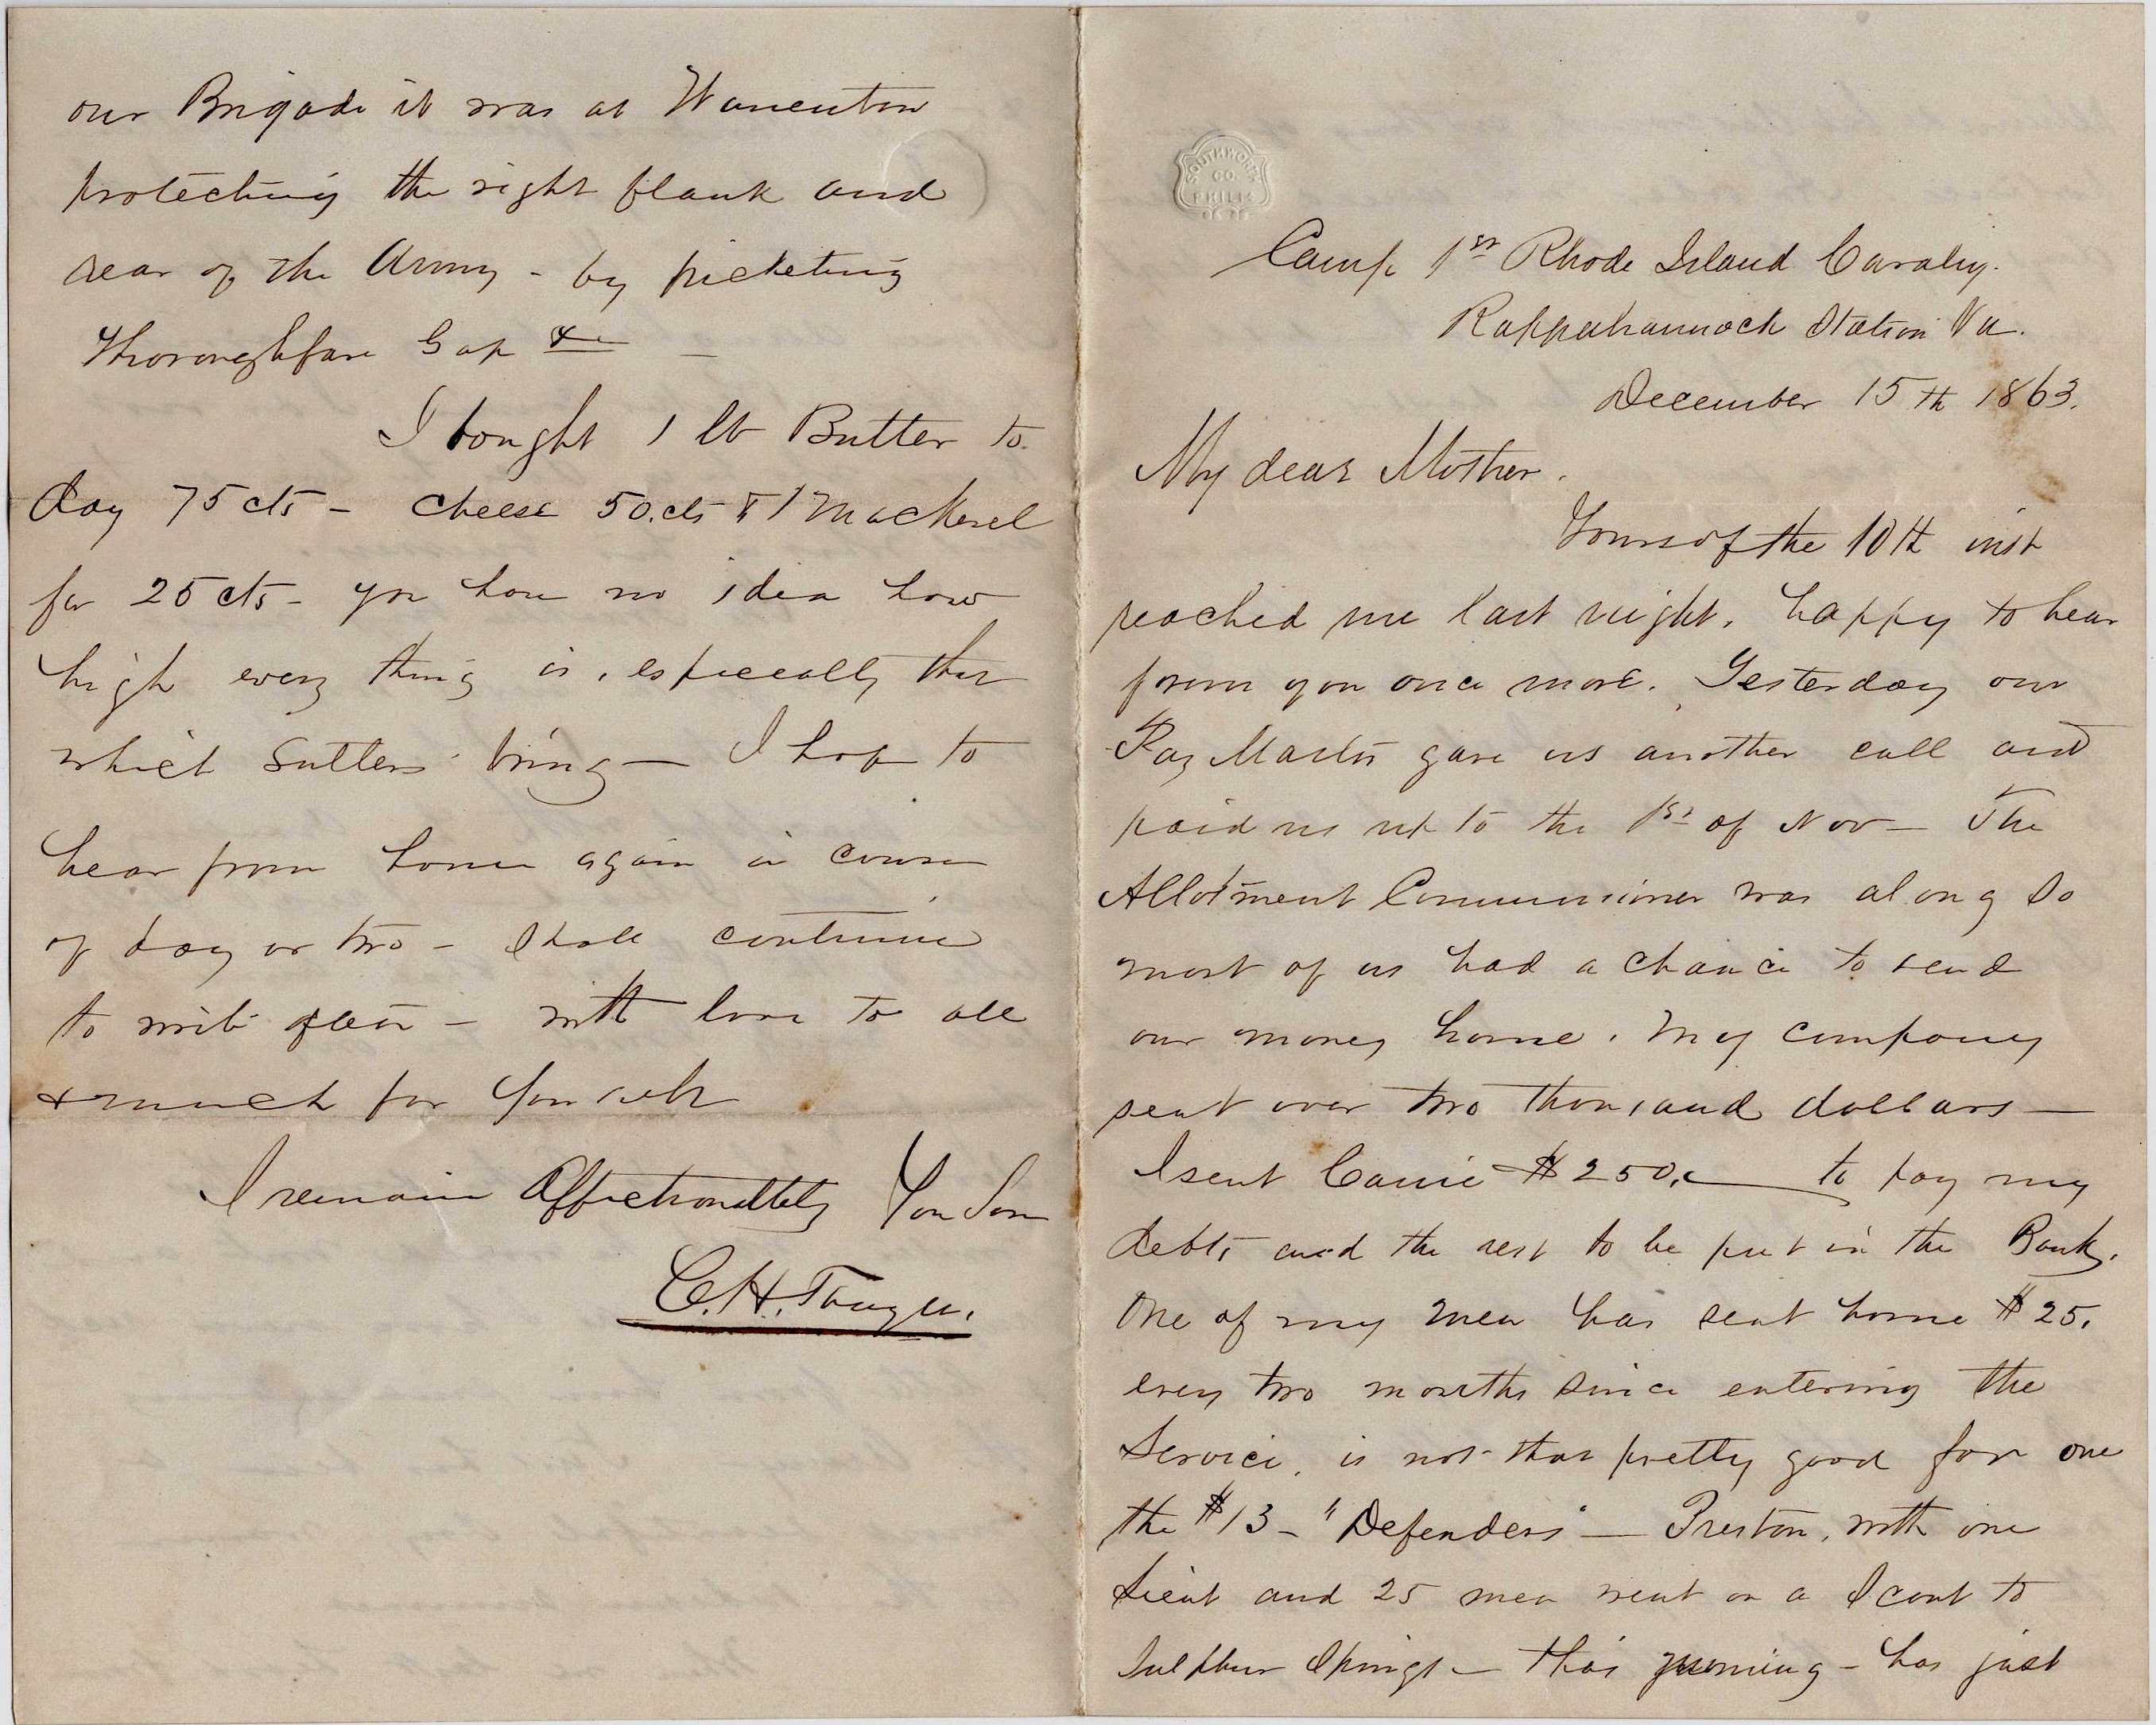 SOUTHWORTH
CO.
PHILA
Camp 1st Rhode Island Cavalry.
Rappahannock Station Va.
December 15th 1863.
My dear Mother.
Yours of the 10th inst
reached me last night. happy to hear
from you once more. Yesterday our
Pay Master gave us another call and
paid us up to the 1st of Nov — The
Allotment Commissioner was along so
most of us had a chance to send
our money home. My company
sent over two thousand dollars —
I sent Carrie $250. — to pay my
debts and the rest to be put in the Bank.
One of my men has sent home $25.
every two months since entering the
Service, is not that pretty good for one
the $13 - "Defenders" — Preston, with one
Lieut and 25 men went on a Scout to
Sulphur Springs — this morning - has just
our Brigade it was at Warrenton
protecting the right flank and
rear of the Army - by picketing
Thoroughfare Gap &c —
I bought 1 lb Butter to
day 75 cts - cheese 50.cts & 1 Mackerel
for 25 cts - you have no idea how
high every thing is, especially that
which Sutlers bring — I hope to
hear from home again in course
of day or two - Shall continue
to write often - with love to all
& much for yourself
I remain Affectionately Your Son
C.H.